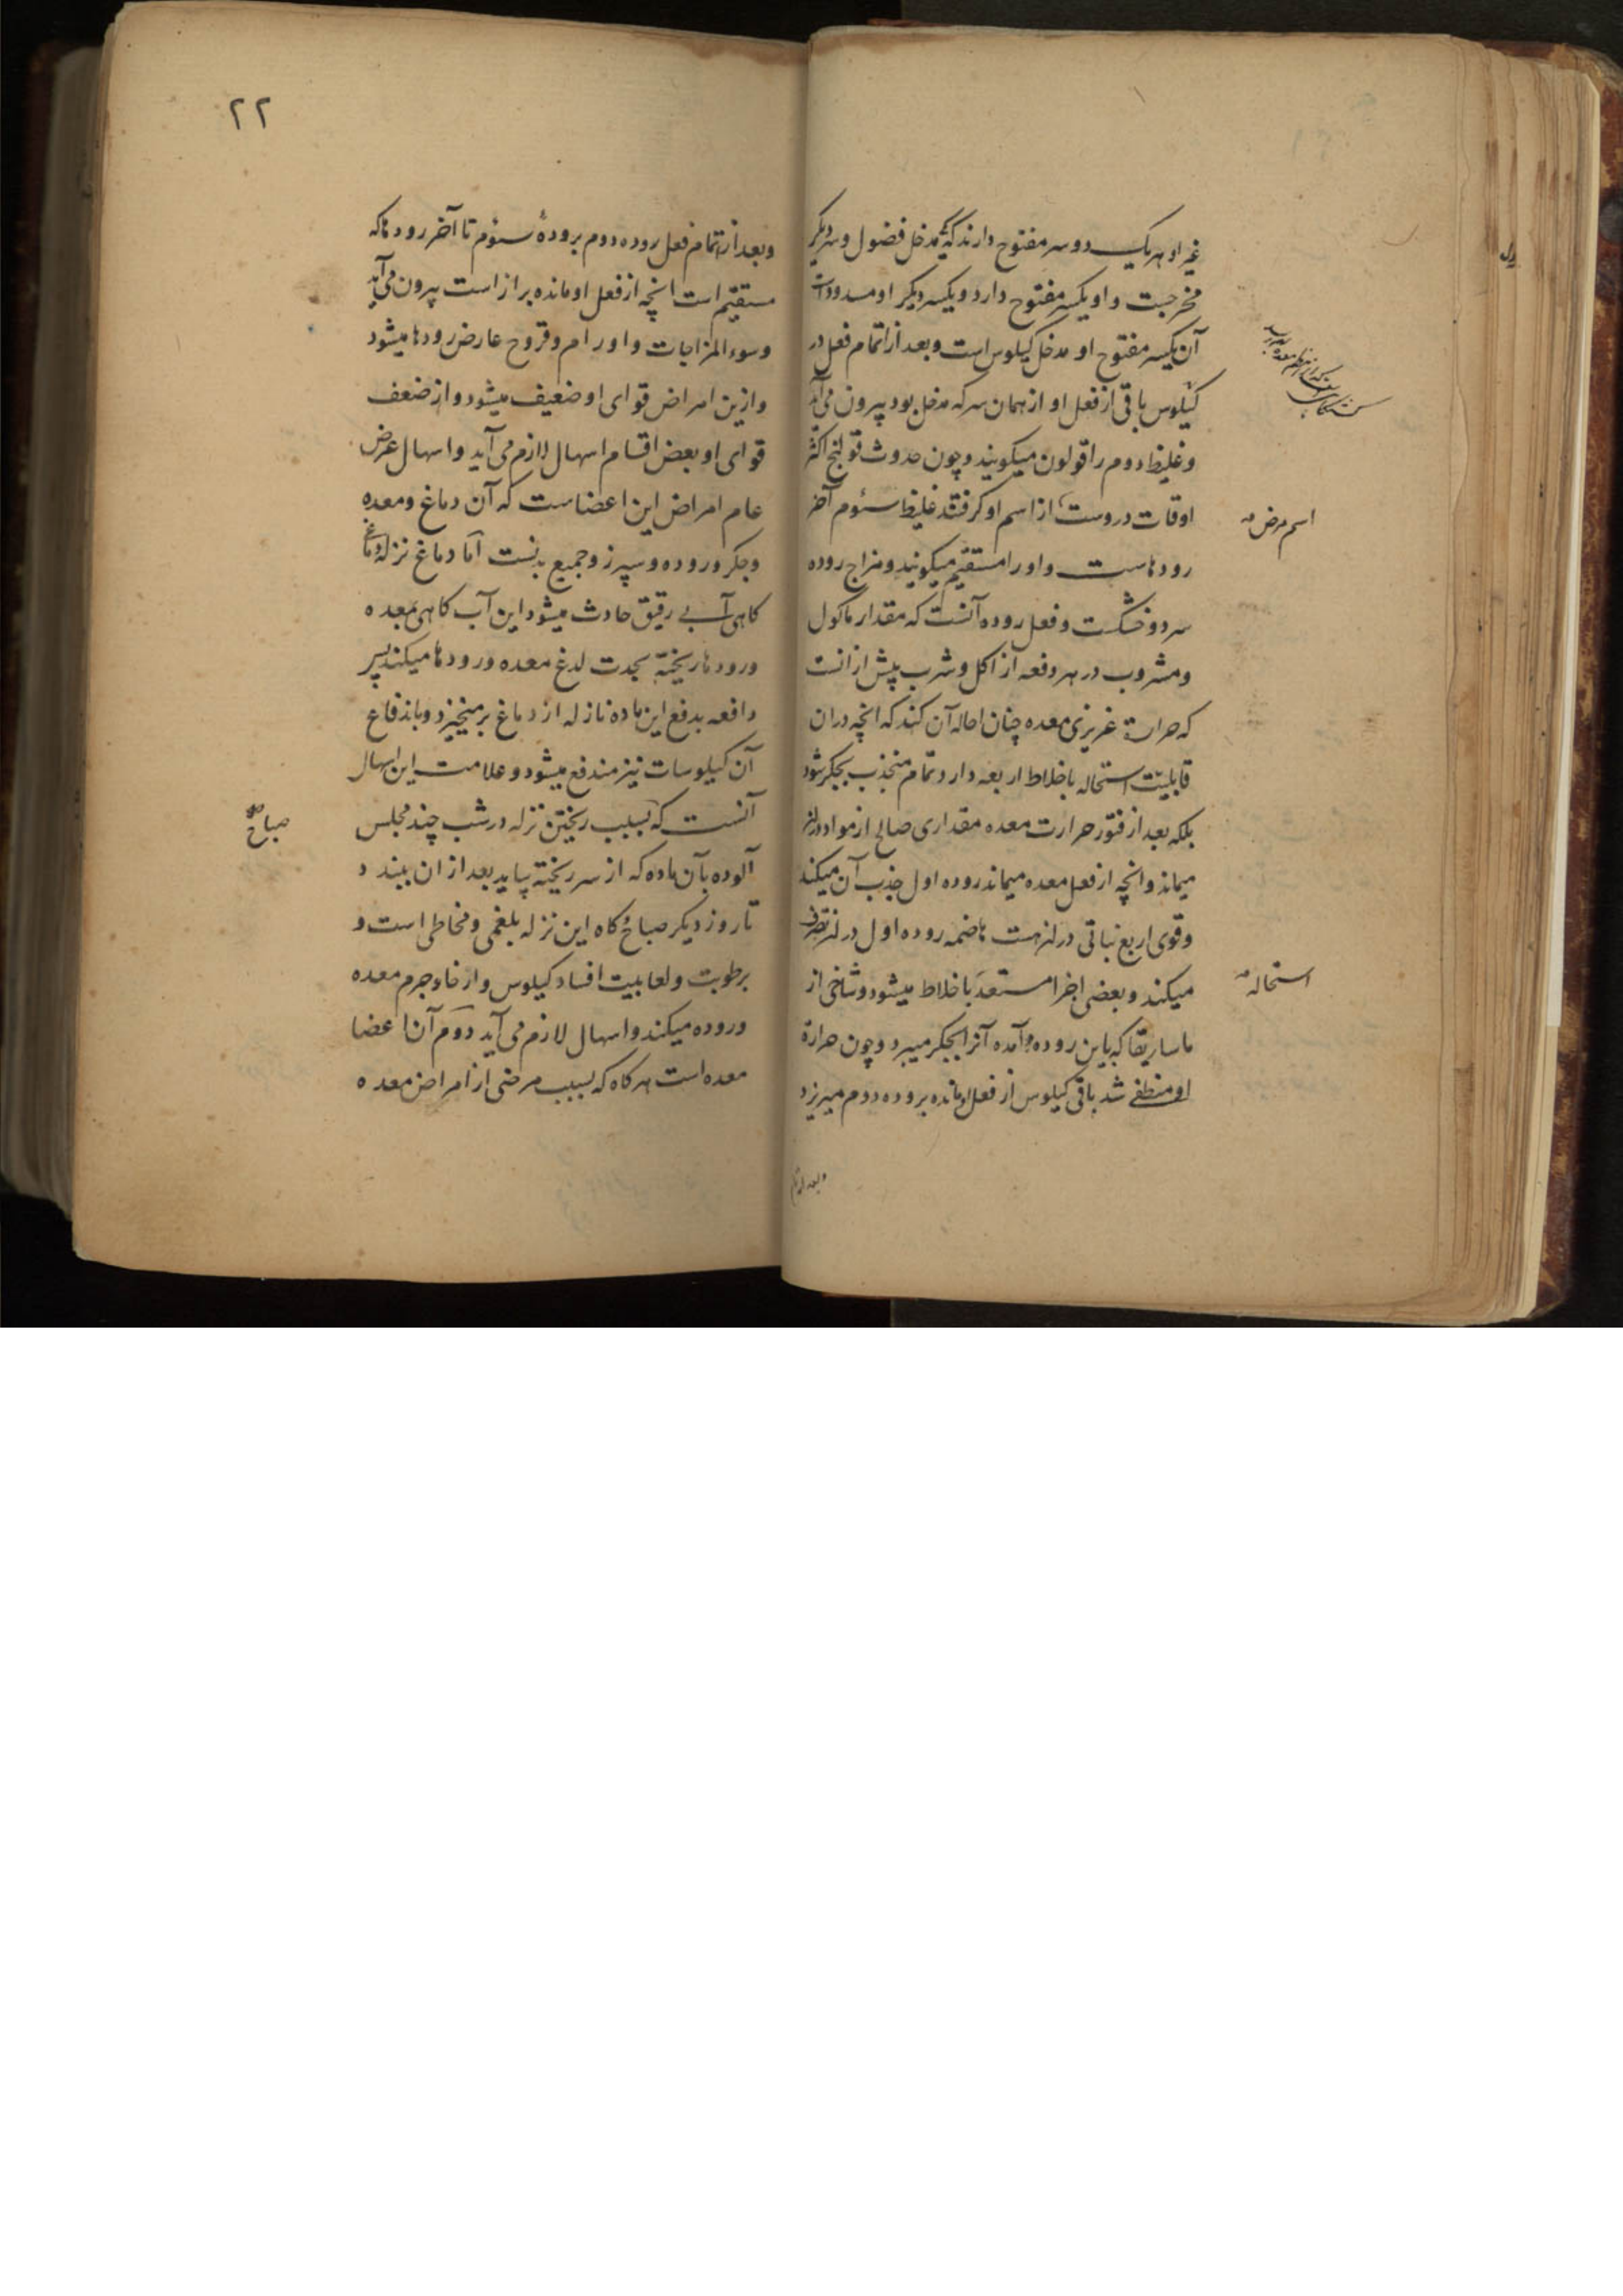 غیر او هر یک دو سر مفتوح دارند یکی مدخل فضول و سر دیگر
مخرجست و او یکسر مفتوح دارد و یکسر دیگر او مسدود است
آن یکسر مفتوح او مدخل کیلوس است و بعد از اتمام فعل در
کیلوس باقی از فعل او از همان سر که مدخل بود بیرون می آید
و غلیظ دوم را قولون میکویند و چون حدوث قولنج اکثر
اوقات دروست از اسم او کرفتند غلیظ سئوم آخر
رودهاست و او را مستقیم میکویند و مزاج روده
سرد و خشکست و فعل روده آنست که مقدار ماکول
و مشروب در هر دفعه از اکل و شرب پیش از انست
که حرارت غریزی معده چنان احاله آن کند که انچه در ان
قابلیت استحاله باخلاط اربعه دارد تمام منجذب بجکر شود
بلکه بعد از فتور حرارت معده مقداری صالح از مواد در
میماند و انچه از فعل معده میماند روده اول جذب آن میکند
و قوی اربع نباتی در هست هاضمه روده اول در تصرف
میکند و بعضی اجزا مستعد باخلاط میشود و شاخی از
ماساریقا که باین روده آمده آنرا بجکر میبرد و چون حرارة
او منطفی شد باقی کیلوس از فعل او مانده بروده دوم میریزد
اسم مرض
استحاله
و بعد از تمام
۲۲
و بعد از اتمام فعل روده دوم بروده سئوم تا آخر رودها که
مستقیم است انچه از فعل او مانده براز است بیرون می آید
و سوء المزاجات و اورام و قروح عارض رودها میشود
و ازین امراض قوای او ضعیف میشود و از ضعف
قوای او بعض اقسام اسهال لازم می آید و اسهال عرض
عام امراض این اعضاست که آن دماغ و معده
و جکر و روده و سپرز و جمیع بدنست اما دماغ نزله دماغ
کاهی آبی رقیق حادث میشود این آب کاهی بمعده
و رودها ریخته بحدت لدغ معده و رودها میکند پس
دافعه بدفع این ماده نازله از دماغ برمیخیزد و باندفاع
آن کیلوسات نیز مندفع میشود و علامت این اسهال
آنست که بسبب ریختن نزله در شب چند مجلس
آلوده بآن ماده که از سر ریخته بیاید بعد از ان ببندد
تا روز دیکر صباح کاه این نزله بلغمی و مخاطی است و
برطوبت و لعابیت افساد کیلوس و ارخاء جرم معده
و روده میکند و اسهال لازم می آید دوم آن اعضا
معده است هر کاه که بسبب مرضی از امراض معده
صباح